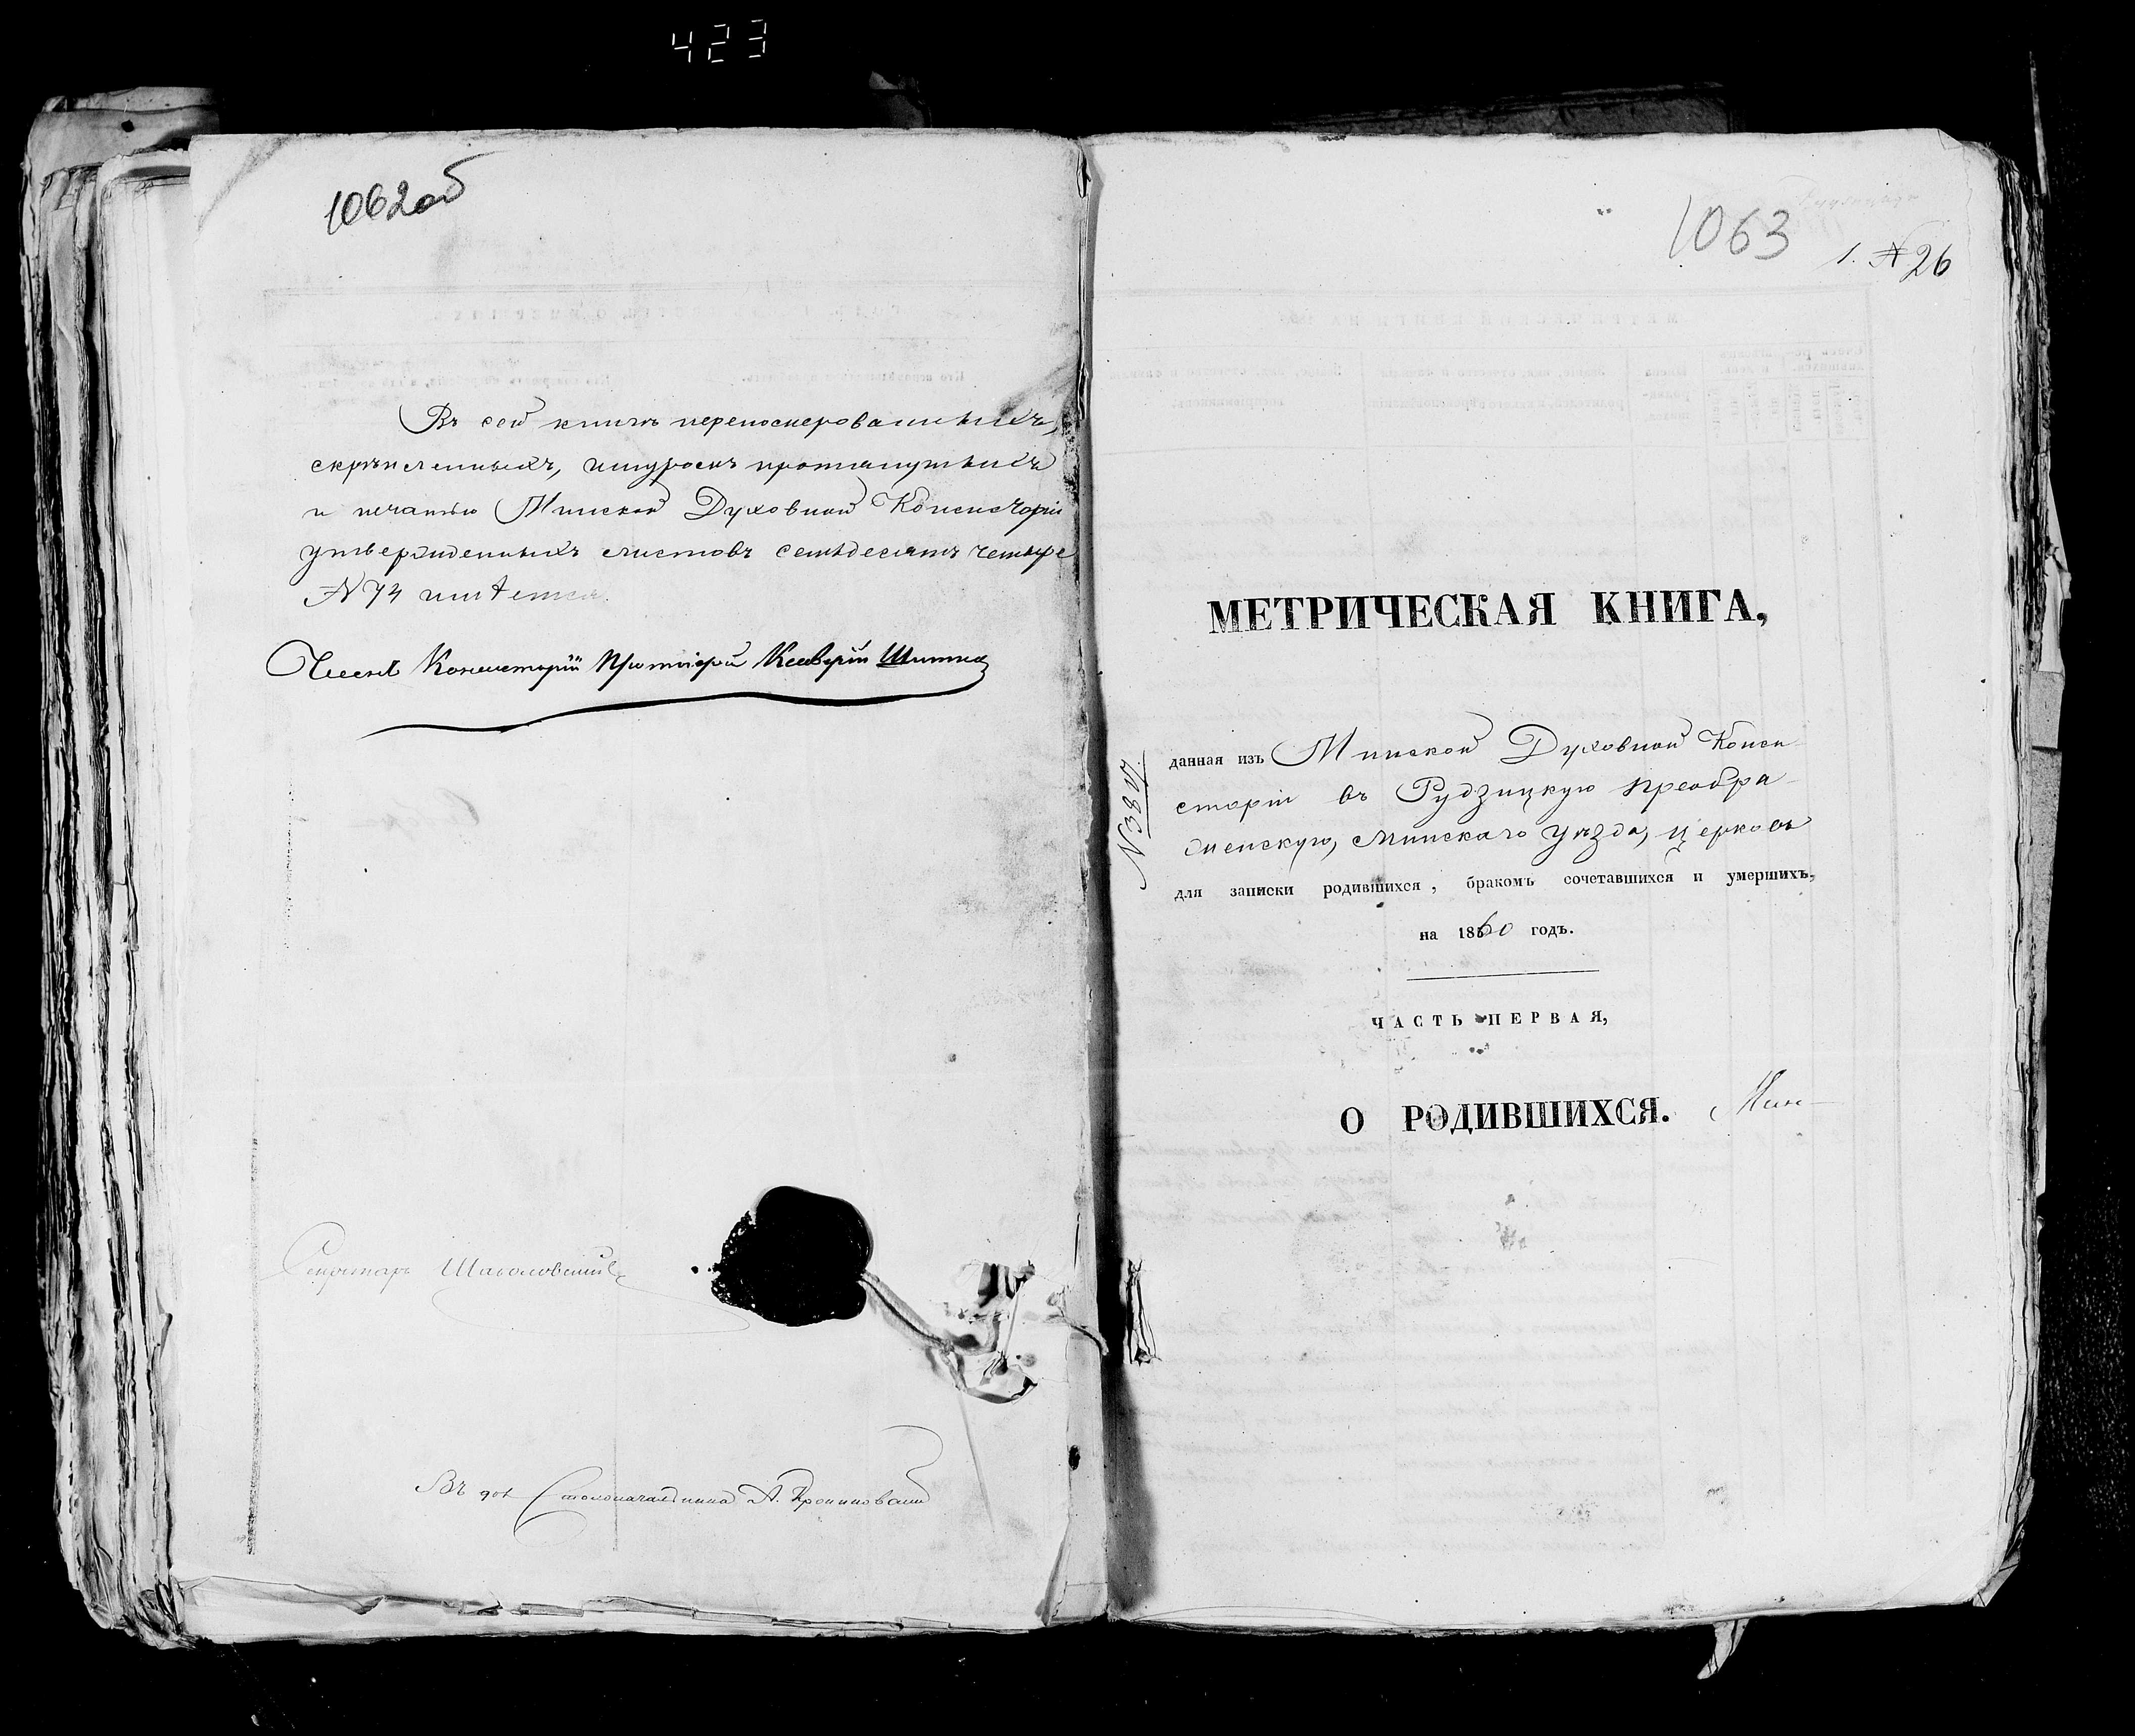 423
1062об
Въ сей книгѣ перенумерованныхъ,
скрѣпленныхъ, шнуромъ протянутыхъ
и печатью Минской Духовной Консисторіи
утвержденныхъ листовъ семьдесятъ четыре
№ 74 имѣется.
Членъ Консисторіи Протоіерей Ксаверій
Секретарь
Въ дол Столоначальника А.
1063
1. № 26
МЕТРИЧЕСКАЯ КНИГА,
данная изъ Минской ДуховнойКонси-
сторіи въ Рудзицкую Преобра-
женскую, Минскаго уѣзда, церковь
для записки родившихся, бракомъ сочетавшихся и умершихъ,
на 1860 годъ.
ЧАСТЬ ПЕРВАЯ,
О РОДИВШИХСЯ.
Мин-